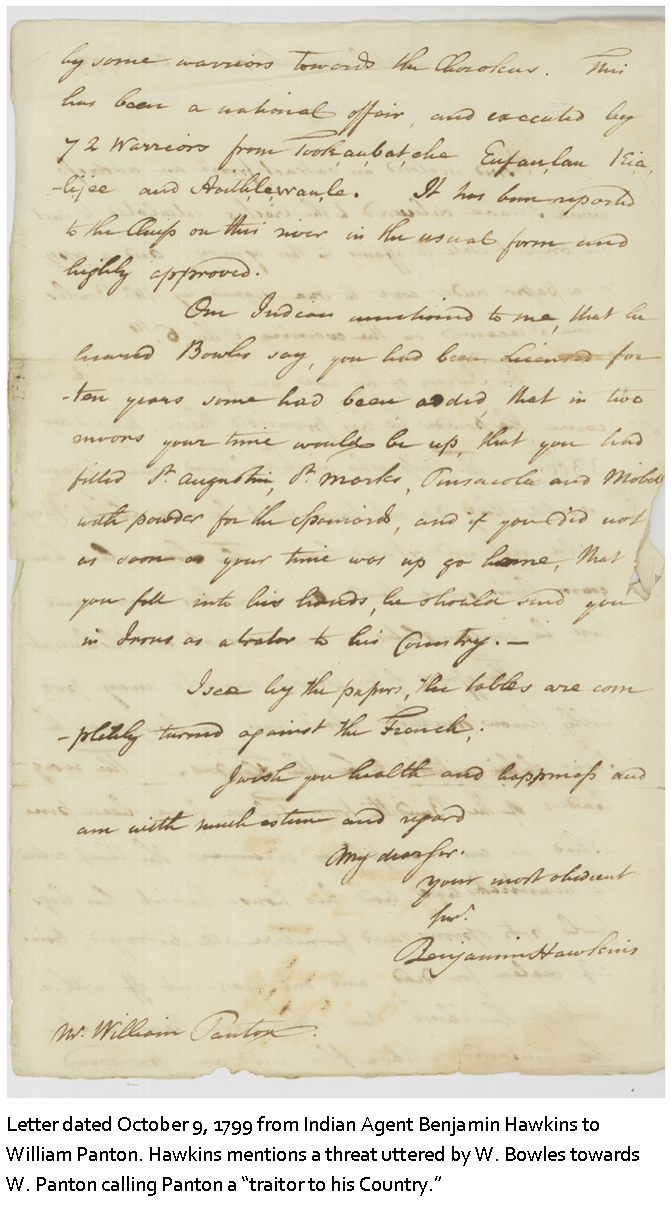 by some warriors towards the Cherokees. This
has been a national affair, and executed by
72 Warriors from Tookaubatche Eufaulau Kia,
-lijee and Autthlewaule. It has been reported
to the Chiefs on this river in the usual form and
highly approved.
One Indian mentioned to me, that he
heared Bowles say, you had been Licensed for
-ten years some had been added, that in two
moons your time would be up, that you had
filled St. Augustin, St. Marks, Pensacola and Mobile
with powder for the Spaniards, and if you did not
as soon as your time was up go home, that
you fell into his hands, he should send you
in Irons as a trator to his Country. —
I see by the papers, the tables are com
-pletely turned against the French.
I wish you health and happiness and
am with much esteem and regard
My dear Sir.
your most obedient
Ser.
Benjamin Hawkins
Mr. William Panton.
Letter dated October 9, 1799 from Indian Agent Benjamin Hawkins to
William Panton. Hawkins mentions a threat uttered by W. Bowles towards
W. Panton calling Panton a “traitor to his Country.”